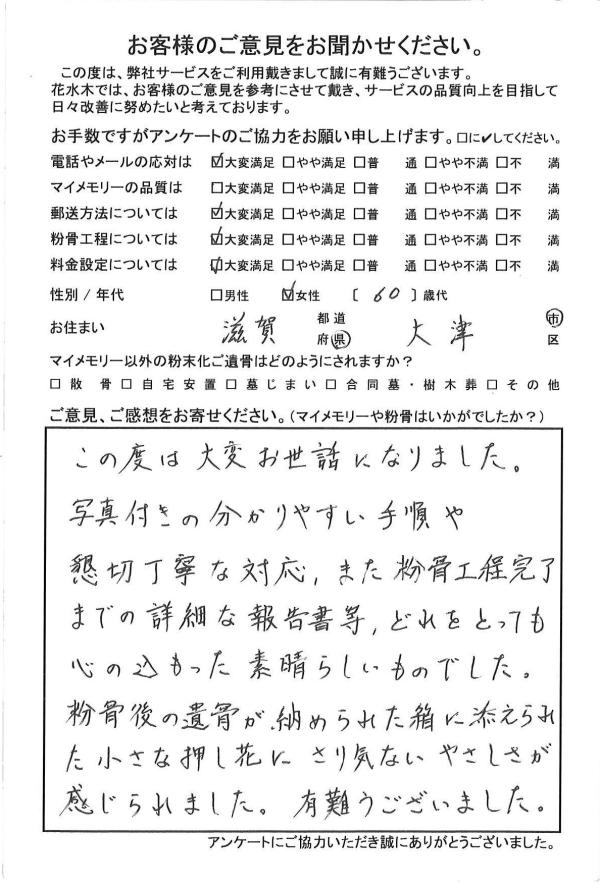 お客様のご意見をお聞かせください。
この度は、弊社サービスをご利用戴きまして誠に有難うございます。
花水木では、お客様のご意見を参考にさせて戴き、サービスの品質向上を目指して
日々改善に努めたいと考えております。
お手数ですがアンケートのご協力をお願い申し上げます。□に✔してください。
電話やメールの応対は ☑大変満足 □やや満足 □普 通 □やや不満 □不 満
マイメモリーの品質は □大変満足 □やや満足 □普 通 □やや不満 □不 満
郵送方法については ☑大変満足 □やや満足 □普 通 □やや不満 □不 満
粉骨工程については ☑大変満足 □やや満足 □普 通 □やや不満 □不 満
料金設定については ☑大変満足 □やや満足 □普 通 □やや不満 □不 満
性別 / 年代 □男性 ☑女性 〔 60 〕歳代
お住まい 滋賀 都道府県 大津 市区
マイメモリー以外の粉末化ご遺骨はどのようにされますか？
□散 骨 □自宅安置 □墓じまい □合同墓・樹木葬 □その他
ご意見、ご感想をお寄せください。(マイメモリーや粉骨はいかがでしたか？)
この度は大変お世話になりました。
写真付きの分かりやすい手順や
懇切丁寧な対応, また粉骨工程完了
までの詳細な報告書等, どれをとっても
心の込もった素晴らしいものでした。
粉骨後の遺骨が納められた箱に添えられ
た小さな押し花に さり気ない やさしさが
感じられました。 有難うございました。
アンケートにご協力いただき誠にありがとうございました。